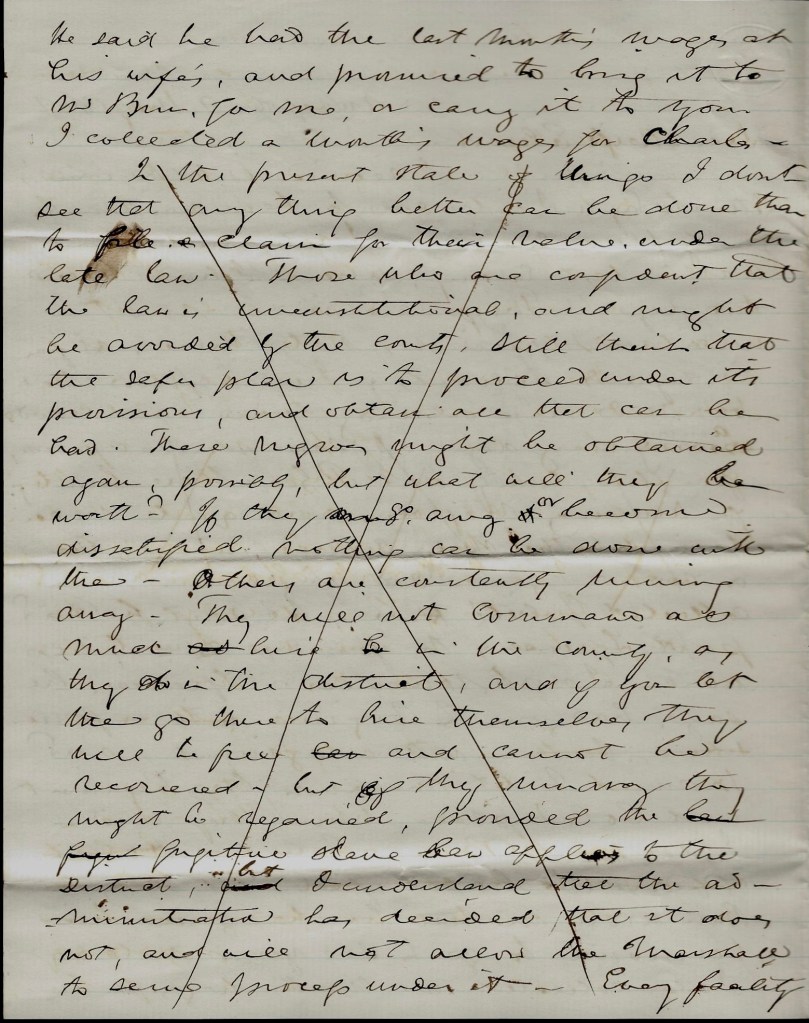 He said he had the last month's wages at
his wife's, and promised to bring it to
Mr for me, or carry it to you.
I collected a month's wages for Charles -
In the present state of things I dont
see that any thing better can be done than
to file a claim for their value under the
late law. Those who are confident that
the law is unconstitutional, and might
be avoided by the courts, still think that
the safer plan is to proceed under its
provisions, and obtain all that can be
had. These negroes might be obtained
again, possibly, but what will they be
worth? If they go away or become
dissatisfied nothing can be done with
them - Others are constantly running
away - They will not command as
much hire in the county, as
they do in the district, and if you let
them go there to hire themselves they
will be free and cannot be
recovered - but if they runaway they
might be regained, provided the law
fugitive slave law applies to the
District, but I understand that the ad-
-ministration has decided that it does
not, and will not allow the Marshall
to serve process under it - Every facility